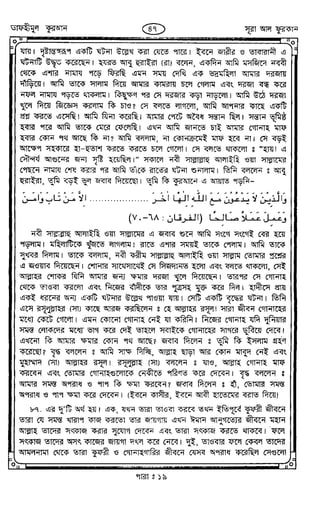 তাফহীমুল কুরআন ৪৭ সূরা আল ফুরকান
যায়। দৃষ্টান্তস্বরূপ একটি ঘটনা উল্লেখ করা যেতে পারে। ইবনে জারীর ও তাবারানী এ
ঘটনাটি উদ্ধৃত করেছেন। হযরত আবু হুরাইরা (রা) বলেন, একদিন আমি মসজিদে নববী
থেকে এশার নামায পড়ে ফিরছি এমন সময় দেখি এক ভদ্রমহিলা আমার দরজায়
দাঁড়িয়ে। আমি তাকে সালাম দিয়ে আমার কামরায় চলে গেলাম এবং দরজা বন্ধ করে
নফল নামায পড়তে থাকলাম। কিছুক্ষণ পর সে দরজার কড়া নাড়লো। আমি উঠে দরজা
খুলে দিয়ে জিজ্ঞেস করলাম কি চাও? সে বলতে লাগলো, আমি আপনার কাছে একটি
প্রশ্ন করতে এসেছি। আমি যিনা করেছি। আমার পেটে অবৈধ সন্তান ছিল। সন্তান ভূমিষ্ঠ
হবার পরে আমি তাকে মেরে ফেলেছি। এখন আমি জানতে চাই আমার গোনাহ মাফ
হবার কোন পথ আছে কি না? আমি বললাম, না কোনক্রমেই মাফ হবে না। সে বড়ই
আক্ষেপ সহকারে হা-হুতাশ করতে করতে চলে গেলো। সে বলতে থাকলো : "হায়! এ
সৌন্দর্য আগুনের জন্য সৃষ্টি হয়েছিল।" সকালে নবী সাল্লাল্লাহু আলাইহি ওয়া সাল্লামের
পেছনে নামায শেষ করার পর আমি তাঁকে রাতের ঘটনা শুনলাম। তিনি বললেন : আবু
হুরাইরা, তুমি বড়ই ভুল জবাব দিয়েছো। তুমি কি কুরআনে এ আয়াত পড়নি–
وَالَّذِينَ لَا يَدْعُونَ مَعَ اللهِ إِلٰهًا اٰخَرَ .................... إِلَّا مَنْ تَابَ وَاٰمَنَ
وَعَمِلَ عَمَلًا صَالِحًا (الفرقان : ٦٨-٧٠)
নবী সাল্লাল্লাহু আলাইহি ওয়া সাল্লামের এ জবাব শুনে আমি সংগে সংগেই বের হয়ে
পড়লাম। মহিলাটিকে খুঁজতে লাগলাম। রাতে এশার সময়ই তাকে পেলাম। আমি তাকে
সুখবর দিলাম। তাকে বললাম, নবী করীম সাল্লাল্লাহু আলাইহি ওয়া সাল্লাম তোমার প্রশ্নের
এ জওয়াব দিয়েছেন। শোনার সাথেসাথেই সে সিজদানত হলো এবং বলতে থাকলো, সেই
আল্লাহর শোকর যিনি আমার জন্য ক্ষমার দরজা খুলে দিয়েছেন। তারপর সে গোনাহ
থেকে তাওবা করলো এবং নিজের বাঁদীকে তার পুত্রসহ মুক্ত করে দিল। হাদীসে প্রায়
একই ধরনের অন্য একটি ঘটনার উল্লেখ পাওয়া যায়। সেটি একটি বৃদ্ধের ঘটনা। তিনি
এসে রসূলুল্লাহর (সা) কাছে আরজ করছিলেন : হে আল্লাহর রসূল! সারা জীবন গোনাহের
মধ্যে কেটে গেলো। এমন কোনো গোনাহ নেই যা করিনি। নিজের গোনাহ যদি দুনিয়ার
সমস্ত লোকদের মধ্যে ভাগ করে দেই তাহলে সবাইকে গোনাহের সাগরে ডুবিয়ে দেবে।
এখনো কি আমার ক্ষমার কোন পথ আছে? জবাব দিলেন : তুমি কি ইসলাম গ্রহণ
করেছো? বৃদ্ধ বললেন : আমি সাক্ষ দিচ্ছি, আল্লাহ ছাড়া আর কোন মাবুদ নেই এবং
মুহাম্মাদ (সা) আল্লাহর রসূল। রসূলুল্লাহ (সা) বললেন : যাও, আল্লাহ গোনাহ মাফ
করবেন এবং তোমার গোনাহগুলোকে নেকীতে পরিণত করে দেবেন। বৃদ্ধ বললেন :
আমার সমস্ত অপরাধ ও পাপ কি ক্ষমা করবেন? জবাব দিলেন : হাঁ, তোমার সমস্ত
অপরাধ ও পাপ ক্ষমা করে দেবেন। (ইবনে কাসীর, ইবনে আবী হাতেমের বরাত দিয়ে)
৮৭. এর দু'টি অর্থ হয়। এক, যখন তারা তাওবা করবে তখন ইতিপূর্বে কুফরী জীবনে
তারা যে সমস্ত খারাপ কাজ করতো তার জায়গায় এখন ঈমান আনুগত্যের জীবনে মহান
আল্লাহ তাদের সৎকাজ করার সুযোগ দেবেন এবং তারা সৎকাজ করতে থাকবে। ফলে
সৎকাজ তাদের অসৎ কাজের জায়গা দখল করে নেবে। দুই, তাওবার ফলে কেবল তাদের
আমলনামা থেকে তারা কুফরী ও গোনাহগারির জীবনে যেসব অপরাধ করেছিল সেগুলো
পারা : ১৯